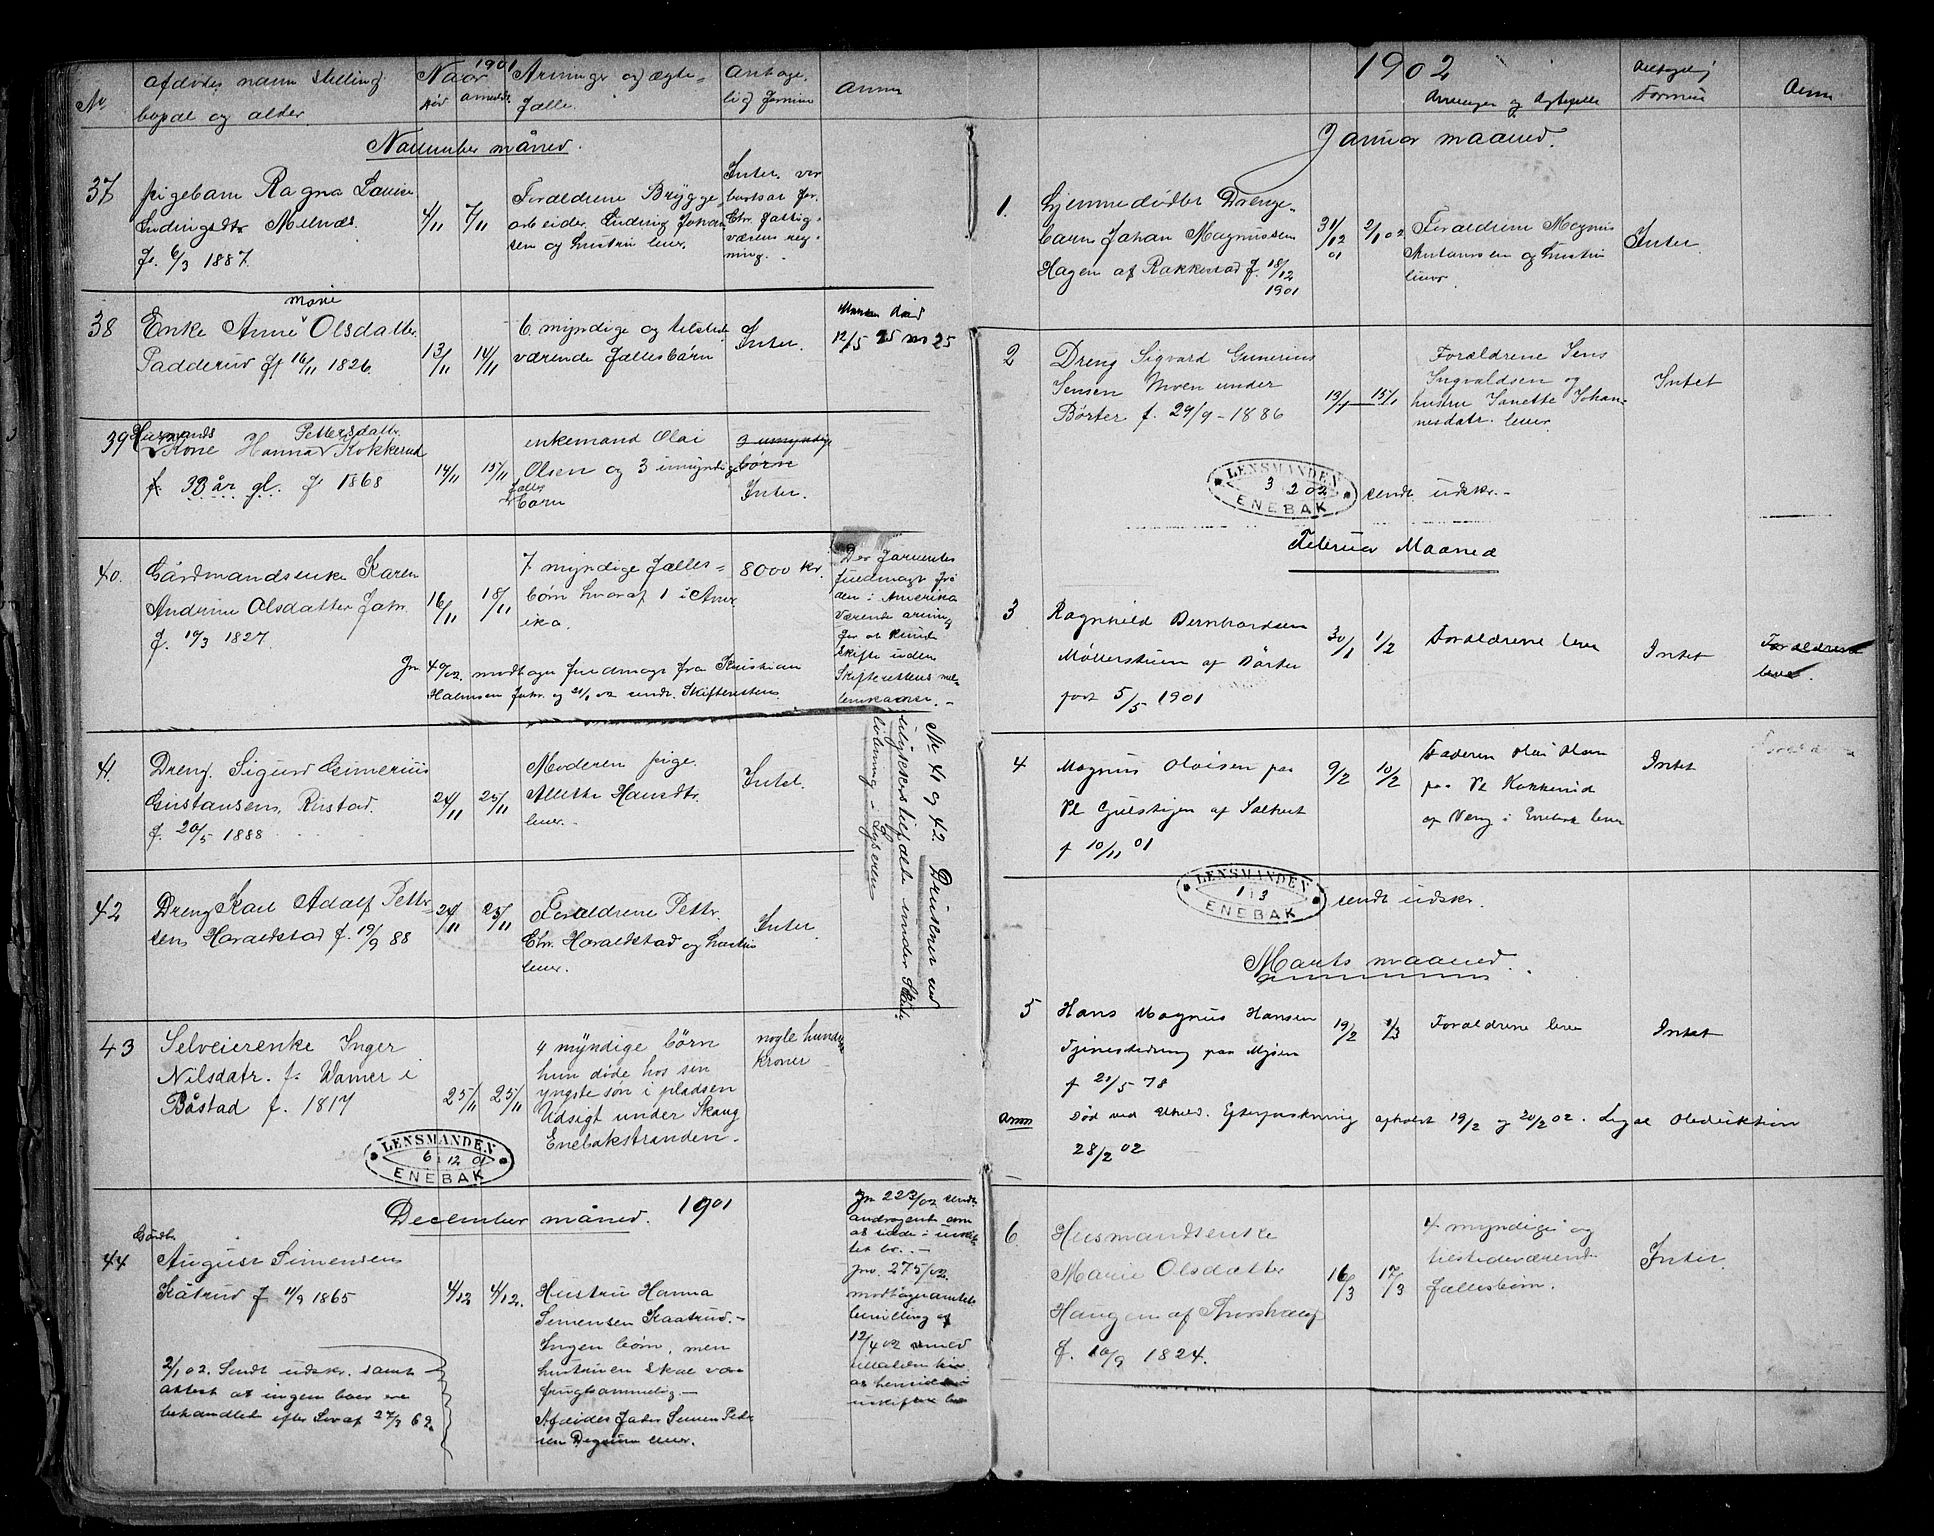 No
Afdødes navn stilling
bopæl og alder.
Naar 1901
død anmeldt
Arvinger og ægte-
fælle.
Antage-
lig formue
Anm
November måned.
37
pigebarn Ragna Louise
Ludvigsdtr Melnæs.
f. 6/3 1887.
4/11
7/11
Forældrene Brygge-
arbeider Ludvig Johan-
sen og hustru lever.
Intet
38
Enke Anne Marie Olsdatter
Padderud f. 16/11 1826.
13/11
14/11
6 myndige og tilstede-
værende fællesbørn
Intet.
12/5 25 no 25
39
Husmands
Kone Hanna Pettersdatter Kokkerud
f. 33 år gl. f. 1868
14/11
15/11
enkemand Olai
Olsen og 3 umyndige
fælles
børn
3 umyndige
børn
Intet.
40.
Gårdmandsenke Karen
Andrine Olsdatter Jahr.
f. 19/3 1827.
16/11
18/11
7 myndige fælles-
børn hvoraf 1 i Amer
ika.
8000 kr.
Der forventes
fuldmagt fra
den i Amerika
værende arving
for at kunde
skifte uden
Skifterettens mel-
lemkomst. -
modtager fuldmagt fra Kristian
Halvorsen Jahr. og 21/1 02 sendt Skifteretten.
41.
Dreng. Sigurd Gunerius
Gustavsens, Rustad.
f. 20/5 1888
24/11
25/11
Moderen pige.
Alette Hansdtr.
lever.-
Intet.
No 41 og 42. Druknet ved
ulykkestilfælde under
i Lyseren
42
Dreng Karl Adolf Petter-
sens Haraldstad f. 19/9 88
24/11
25/11
Forældrene Petter
Chr. Haraldstad og hustru
lever.
Intet.
43
Selveierenke Inger
Nilsdatr. f.
Båstad f. 1817
25/11
25/11
4 myndige børn
hun døde hos sin
yngste søn i pladsen
Udsigt under Skaug
Enebakstranden.
nogle hundre
kroner
LENSMANDEN
6 12 01
ENEBAK
December måned. 1901
44
Gårdbr.
August Simensen
Kåtrud f. 11/9 1865
4/12
4/12.
Hustru Hanna
Simensen Kaatrud.-
Ingen børn, men
hustruen skal være
frugtsommelig-
Afdødes fader Simen Peder
sen Degrum lever.
2/1 02. Sendt udskr. samt
attest at ingen boer ere
behandlet efter lov af 27/3 62.
12/4 02
1902
Arvinger og Ægtefælle
Antagelig
Formue
Anm
Januar maaned.
1.
Hjemmedøbt Drenge-
barn Johan Magnussen
Hagen af Rakkestad f. 18/12
1901
31/12
01
2/1 02
Forældrene Magnus
Antonssen og hustru
lever.
Intet
2
Dreng Sigvard Gunerius
Jensen Moen under
Børter f. 29/9 - 1886
13/1
15/1
Forældrene Jens
Ingvaldsen og
hustru Janette Johan-
nesdatr. lever.
Intet
LENSMANDEN
3 2 02
ENEBAK
sendt udskr.-
Februar Maaned
3
Ragnhild Bernhardsen
Møllerstuen af Børter
født 5/5 1901
30/1
1/2
Forældrene lever
Intet
Forældrene
lever.
4
Magnus Olaisen paa
Pl Gulstigen af
f 10/11 01
9/2
10/2
Faderen Olai Olsen
paa Pl Kokkerud
af Vaag i Enebak lever
Intet
LENSMANDEN
1 3
ENEBAK
sendt udskr.
Marts maaned.
5
Hans Magnus Hansen
Tjenestedreng paa Mjsen
f 21/5 78
19/2
1/3
Forældrene lever
Intet
Anm
Død ved Uheld. Efterforskning afholdt 19/2 og 20/2 02. Legal Obduktion
28/2 02
6
Husmandsenke
Marie Olsdatter
Haugen af
f. 10/9 1824.
16/3
17/3
4 myndige og
tilstedeværende
fællesbørn.
Intet.